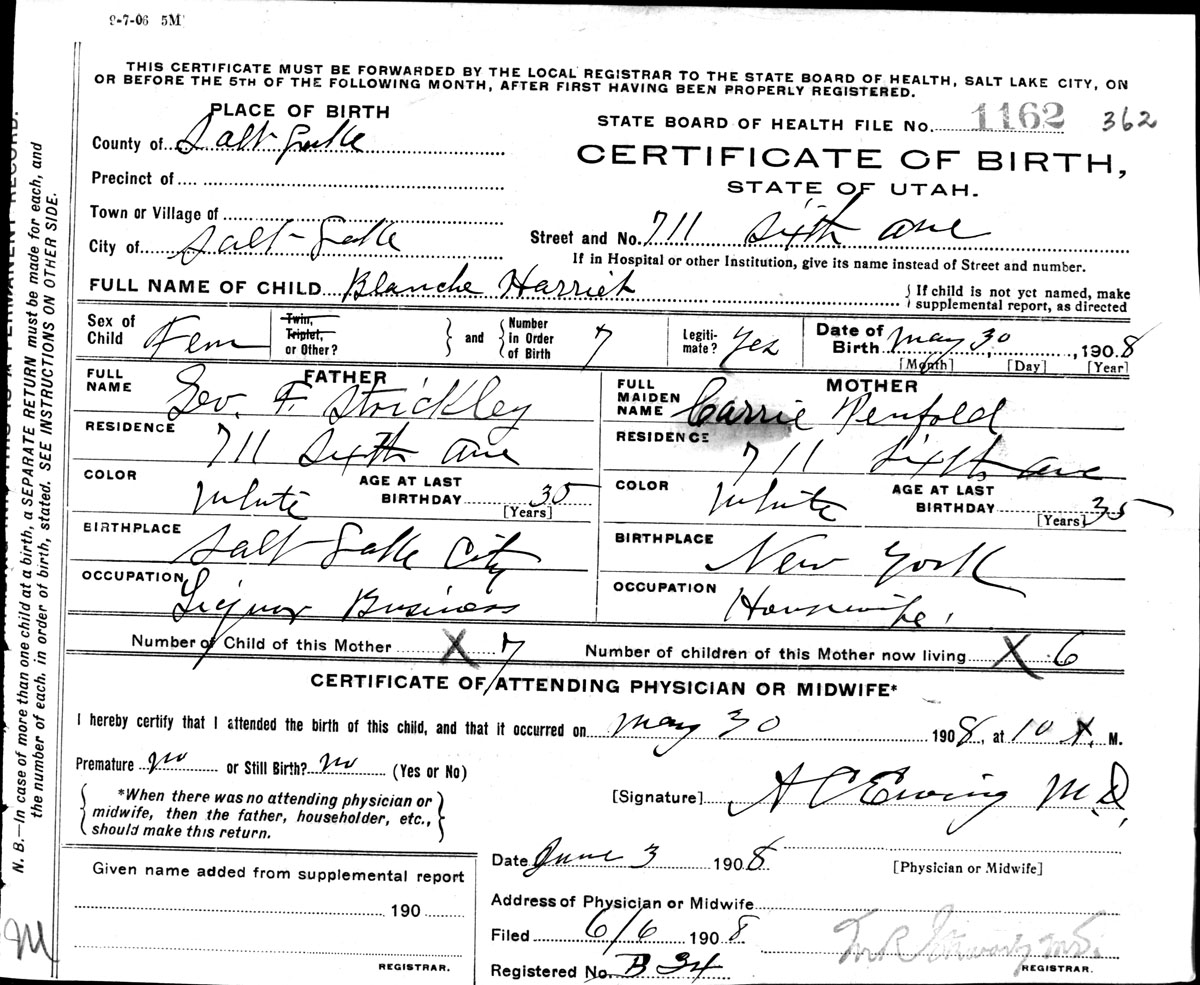 9-7-06 5M
THIS CERTIFICATE MUST BE FORWARDED BY THE LOCAL REGISTRAR TO THE STATE BOARD OF HEALTH, SALT LAKE CITY, ON
OR BEFORE THE 5TH OF THE FOLLOWING MONTH, AFTER FIRST HAVING BEEN PROPERLY REGISTERED.
PLACE OF BIRTH
STATE BOARD OF HEALTH FILE No. 1162 362
County of Salt Lake
CERTIFICATE OF BIRTH,
STATE OF UTAH.
Precinct of
Town or Village of
City of Salt Lake
Street and No. 711 Sixth ave
If in Hospital or other Institution, give its name instead of Street and number.
FULL NAME OF CHILD Blanche Harriet
{ If child is not yet named, make
supplemental report, as directed
Sex of Child Fem
Twin, Triplet, or Other?
and Number In Order of Birth 7
Legiti-mate? Yes
Date of Birth May 30, 1908
[Month] [Day] [Year]
FATHER
FULL NAME Geo. F. Strickley
RESIDENCE 711 Sixth ave
COLOR White
AGE AT LAST BIRTHDAY 35
[Years]
BIRTHPLACE Salt Lake City
OCCUPATION Liquor Business
MOTHER
FULL MAIDEN NAME Carrie Penfold
RESIDENCE 711 Sixth ave
COLOR White
AGE AT LAST BIRTHDAY 35
[Years]
BIRTHPLACE New York
OCCUPATION Housewife.
Number of Child of this Mother X 7 Number of children of this Mother now living X 6
CERTIFICATE OF ATTENDING PHYSICIAN OR MIDWIFE*
I hereby certify that I attended the birth of this child, and that it occurred on May 30 1908, at 10 M.
Premature no or Still Birth? no (Yes or No)
*When there was no attending physician or
midwife, then the father, householder, etc.,
should make this return.
[Signature] A C Ewing M.D.
Date June 3 1908
[Physician or Midwife]
Given name added from supplemental report
190
REGISTRAR.
Address of Physician or Midwife
Filed 6/6 1908
Registered No. B 34
REGISTRAR.
N. B.—In case of more than one child at a birth, a SEPARATE RETURN must be made for each, and
the number of each, in order of birth, stated. SEE INSTRUCTIONS ON OTHER SIDE.
M